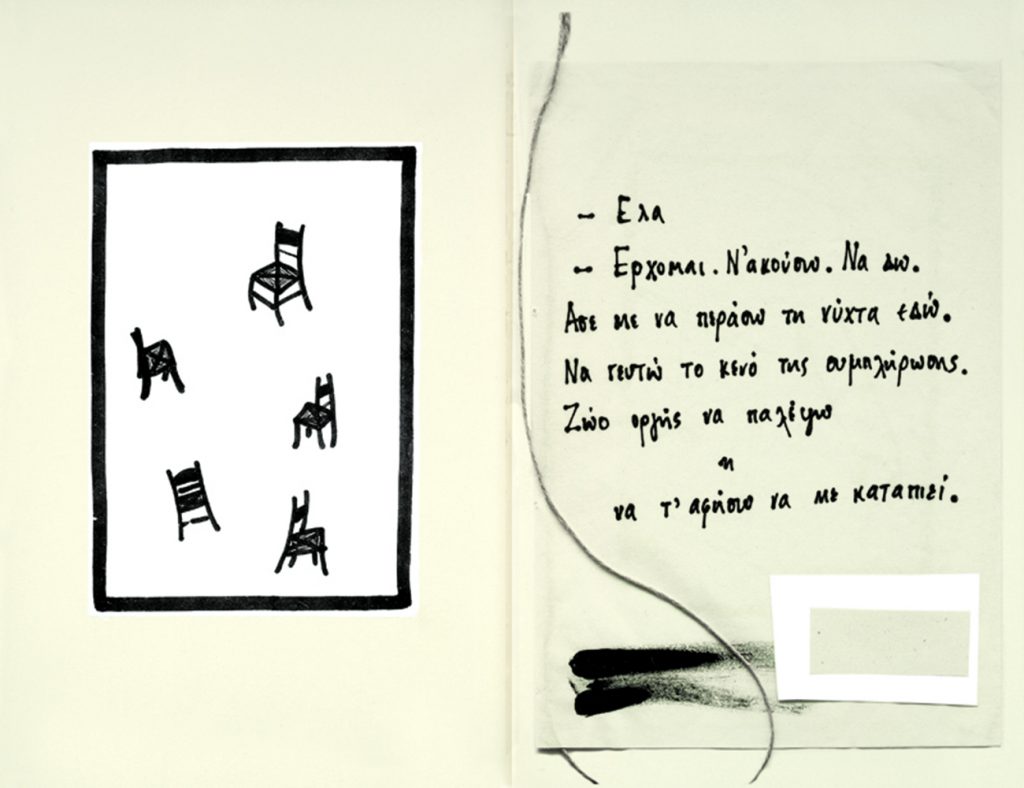 - Ελα
- Ερχομαι. Ν'ακούσω. Να δω.
Ασε με να περάσω τη νύχτα εδώ.
Να γευτώ το κενό της συμπλήρωσης.
Ζώο οργής να παλέψω
η
να τ' αφήσω να με καταπιεί.